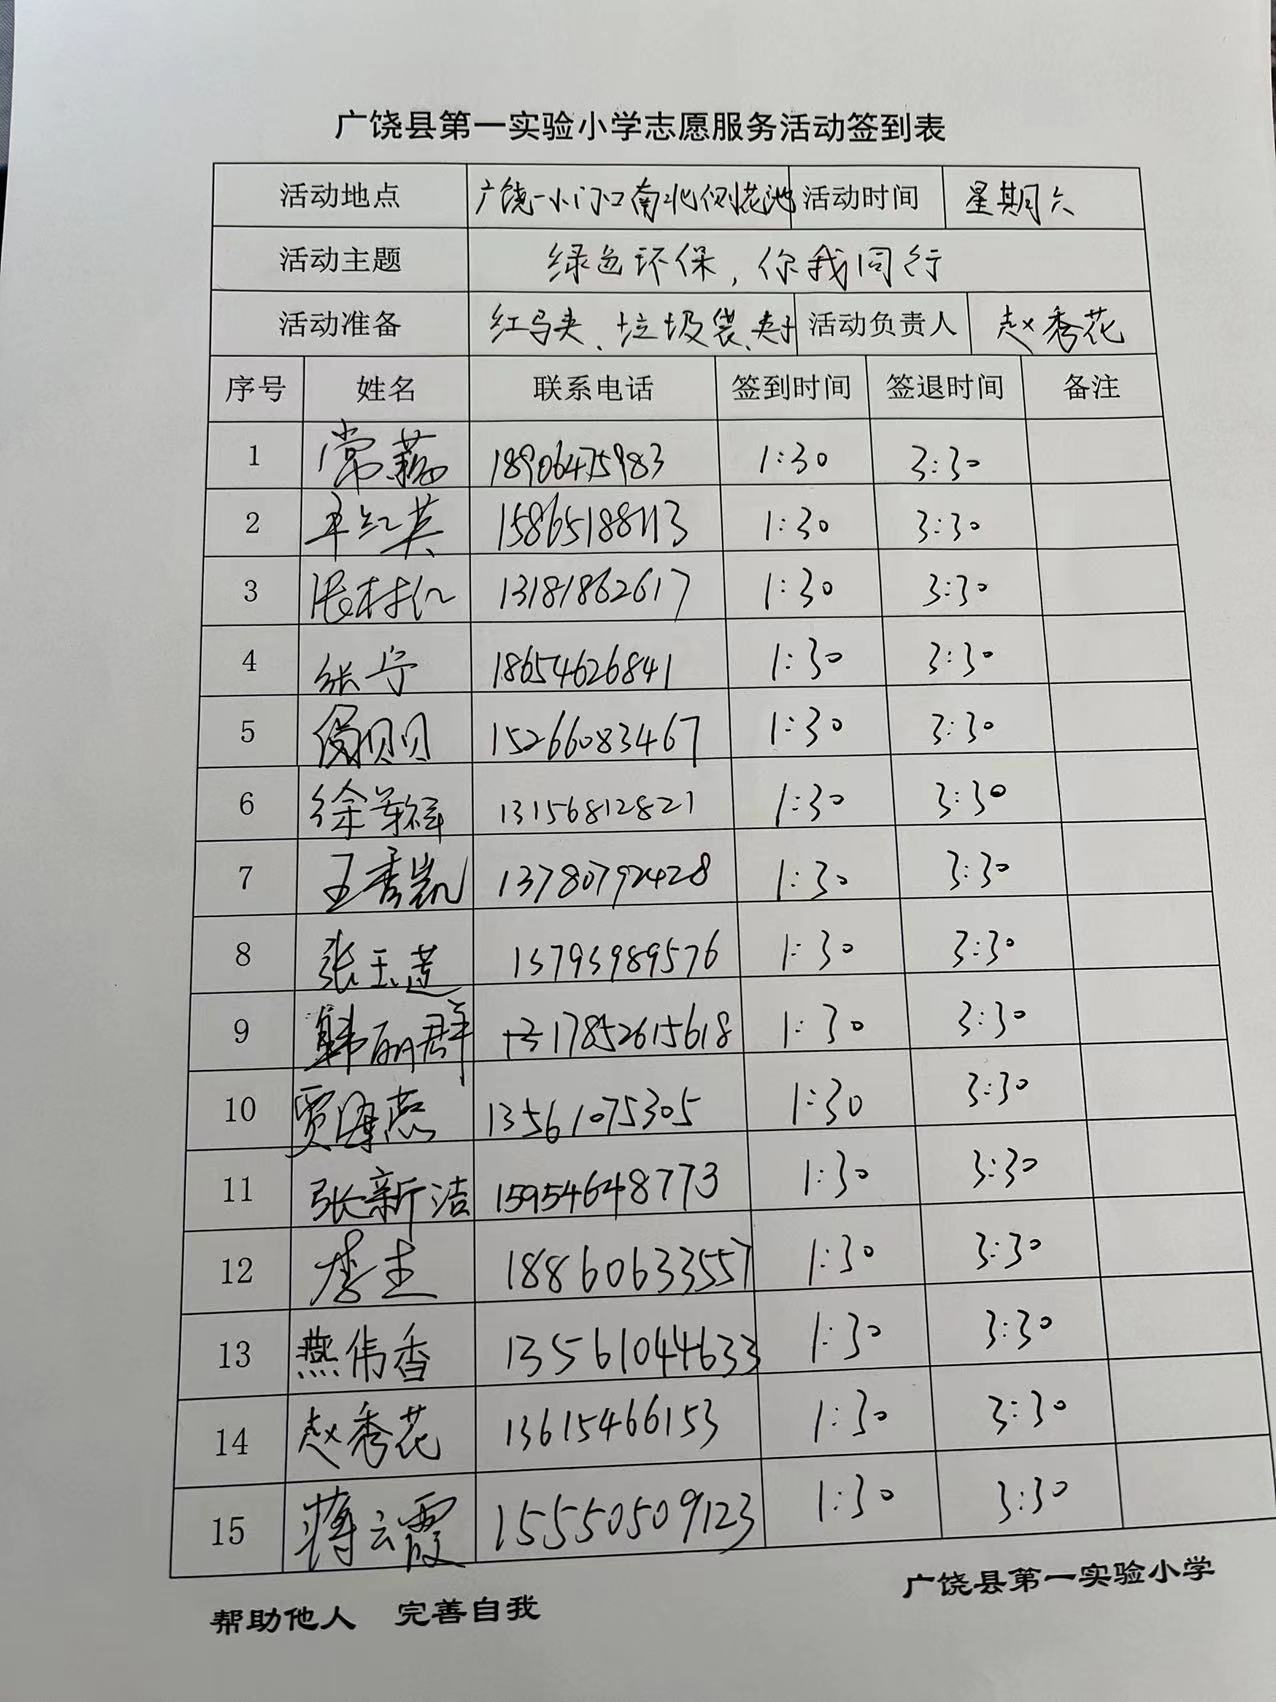 广饶县第一实验小学志愿服务活动签到表
活动地点 广饶一小门口南北侧花池 活动时间 星期六
活动主题 绿色环保，你我同行
活动准备 红马夹、垃圾袋、夹子 活动负责人 赵秀花
序号 姓名 联系电话 签到时间 签退时间 备注
1 常 18906475983 1:30 3:30
2 红英 15865188113 1:30 3:30
3 13181862617 1:30 3:30
4 张宁 18654626841 1:30 3:30
5 贝贝 15266083467 1:30 3:30
6 徐 13156812821 1:30 3:30
7 王秀凯 13780792428 1:30 3:30
8 张玉莲 13793989576 1:30 3:30
9 韩丽群 17852615618 1:30 3:30
10 贾 燕 13561075305 1:30 3:30
11 张新洁 15954648773 1:30 3:30
12 李 18860633557 1:30 3:30
13 燕伟香 13561044633 1:30 3:30
14 赵秀花 13615466153 1:30 3:30
15 蒋云霞 15550509123 1:30 3:30
帮助他人 完善自我 广饶县第一实验小学